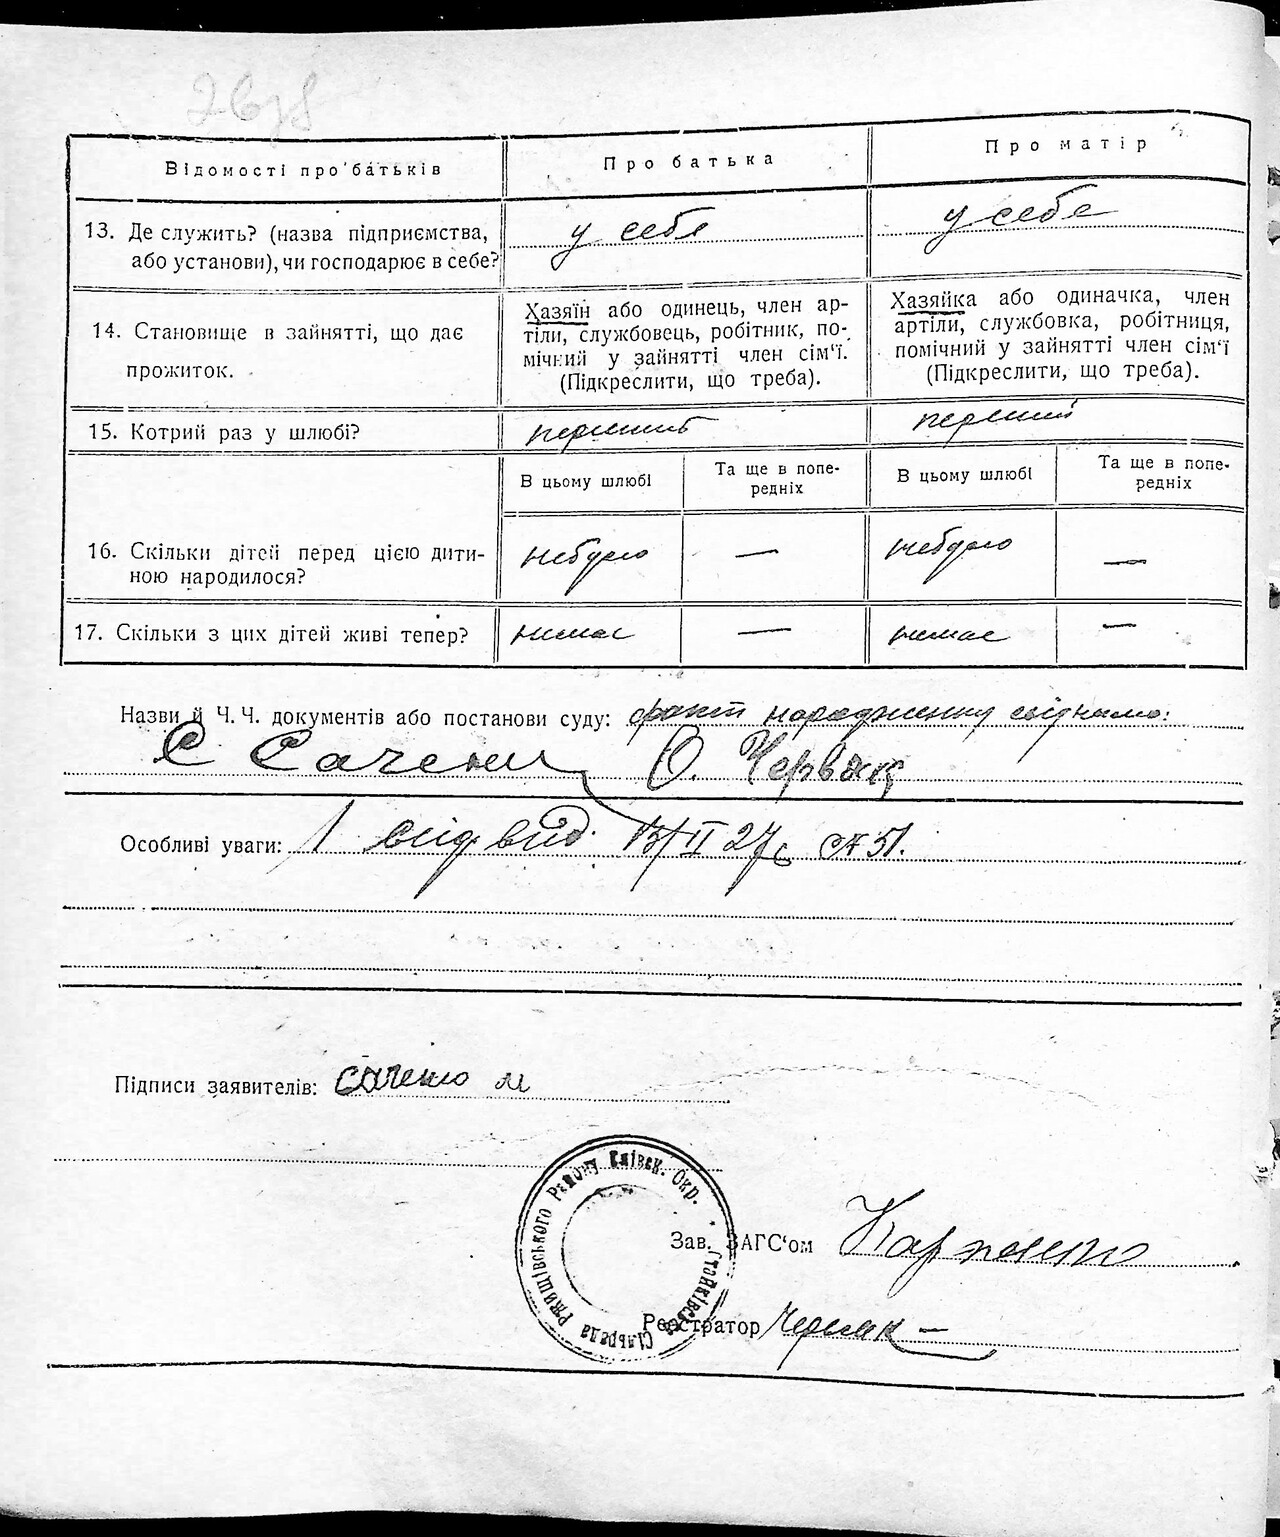 Відомості про батьків Про батька Про матір
13. Де служить? (назва підприємства, або установи), чи господарює в себе? у себе у себе
14. Становище в зайнятті, що дає прожиток.
Хазяїн або одинець, член ар-
тіли, службовець, робітник, по-
мічний у зайнятті член сім'ї.
(Підкреслити, що треба).
Хазяйка або одиначка, член
артіли, службовка, робітниця,
помічний у зайнятті член сім'ї
(Підкреслити, що треба).
15. Котрий раз у шлюбі? перший перший
В цьому шлюбі Та ще в попе-
редніх В цьому шлюбі Та ще в попе-
редніх
16. Скільки дітей перед цією дити-
ною народилося? небуло — небуло —
17. Скільки з цих дітей живі тепер? немає — немає —
Назви й Ч. Ч. документів або постанови суду: факт народження свідчимо:
С Саченко О. Червяк
Особливі уваги: 1 свід. вид. II 27 51.
Підписи заявителів: Саченко м
Стайківська Сільрада Ржищівського Району Київськ. Окр.
Зав. ЗАГС'ом Карпенко
Реєстратор Червяк